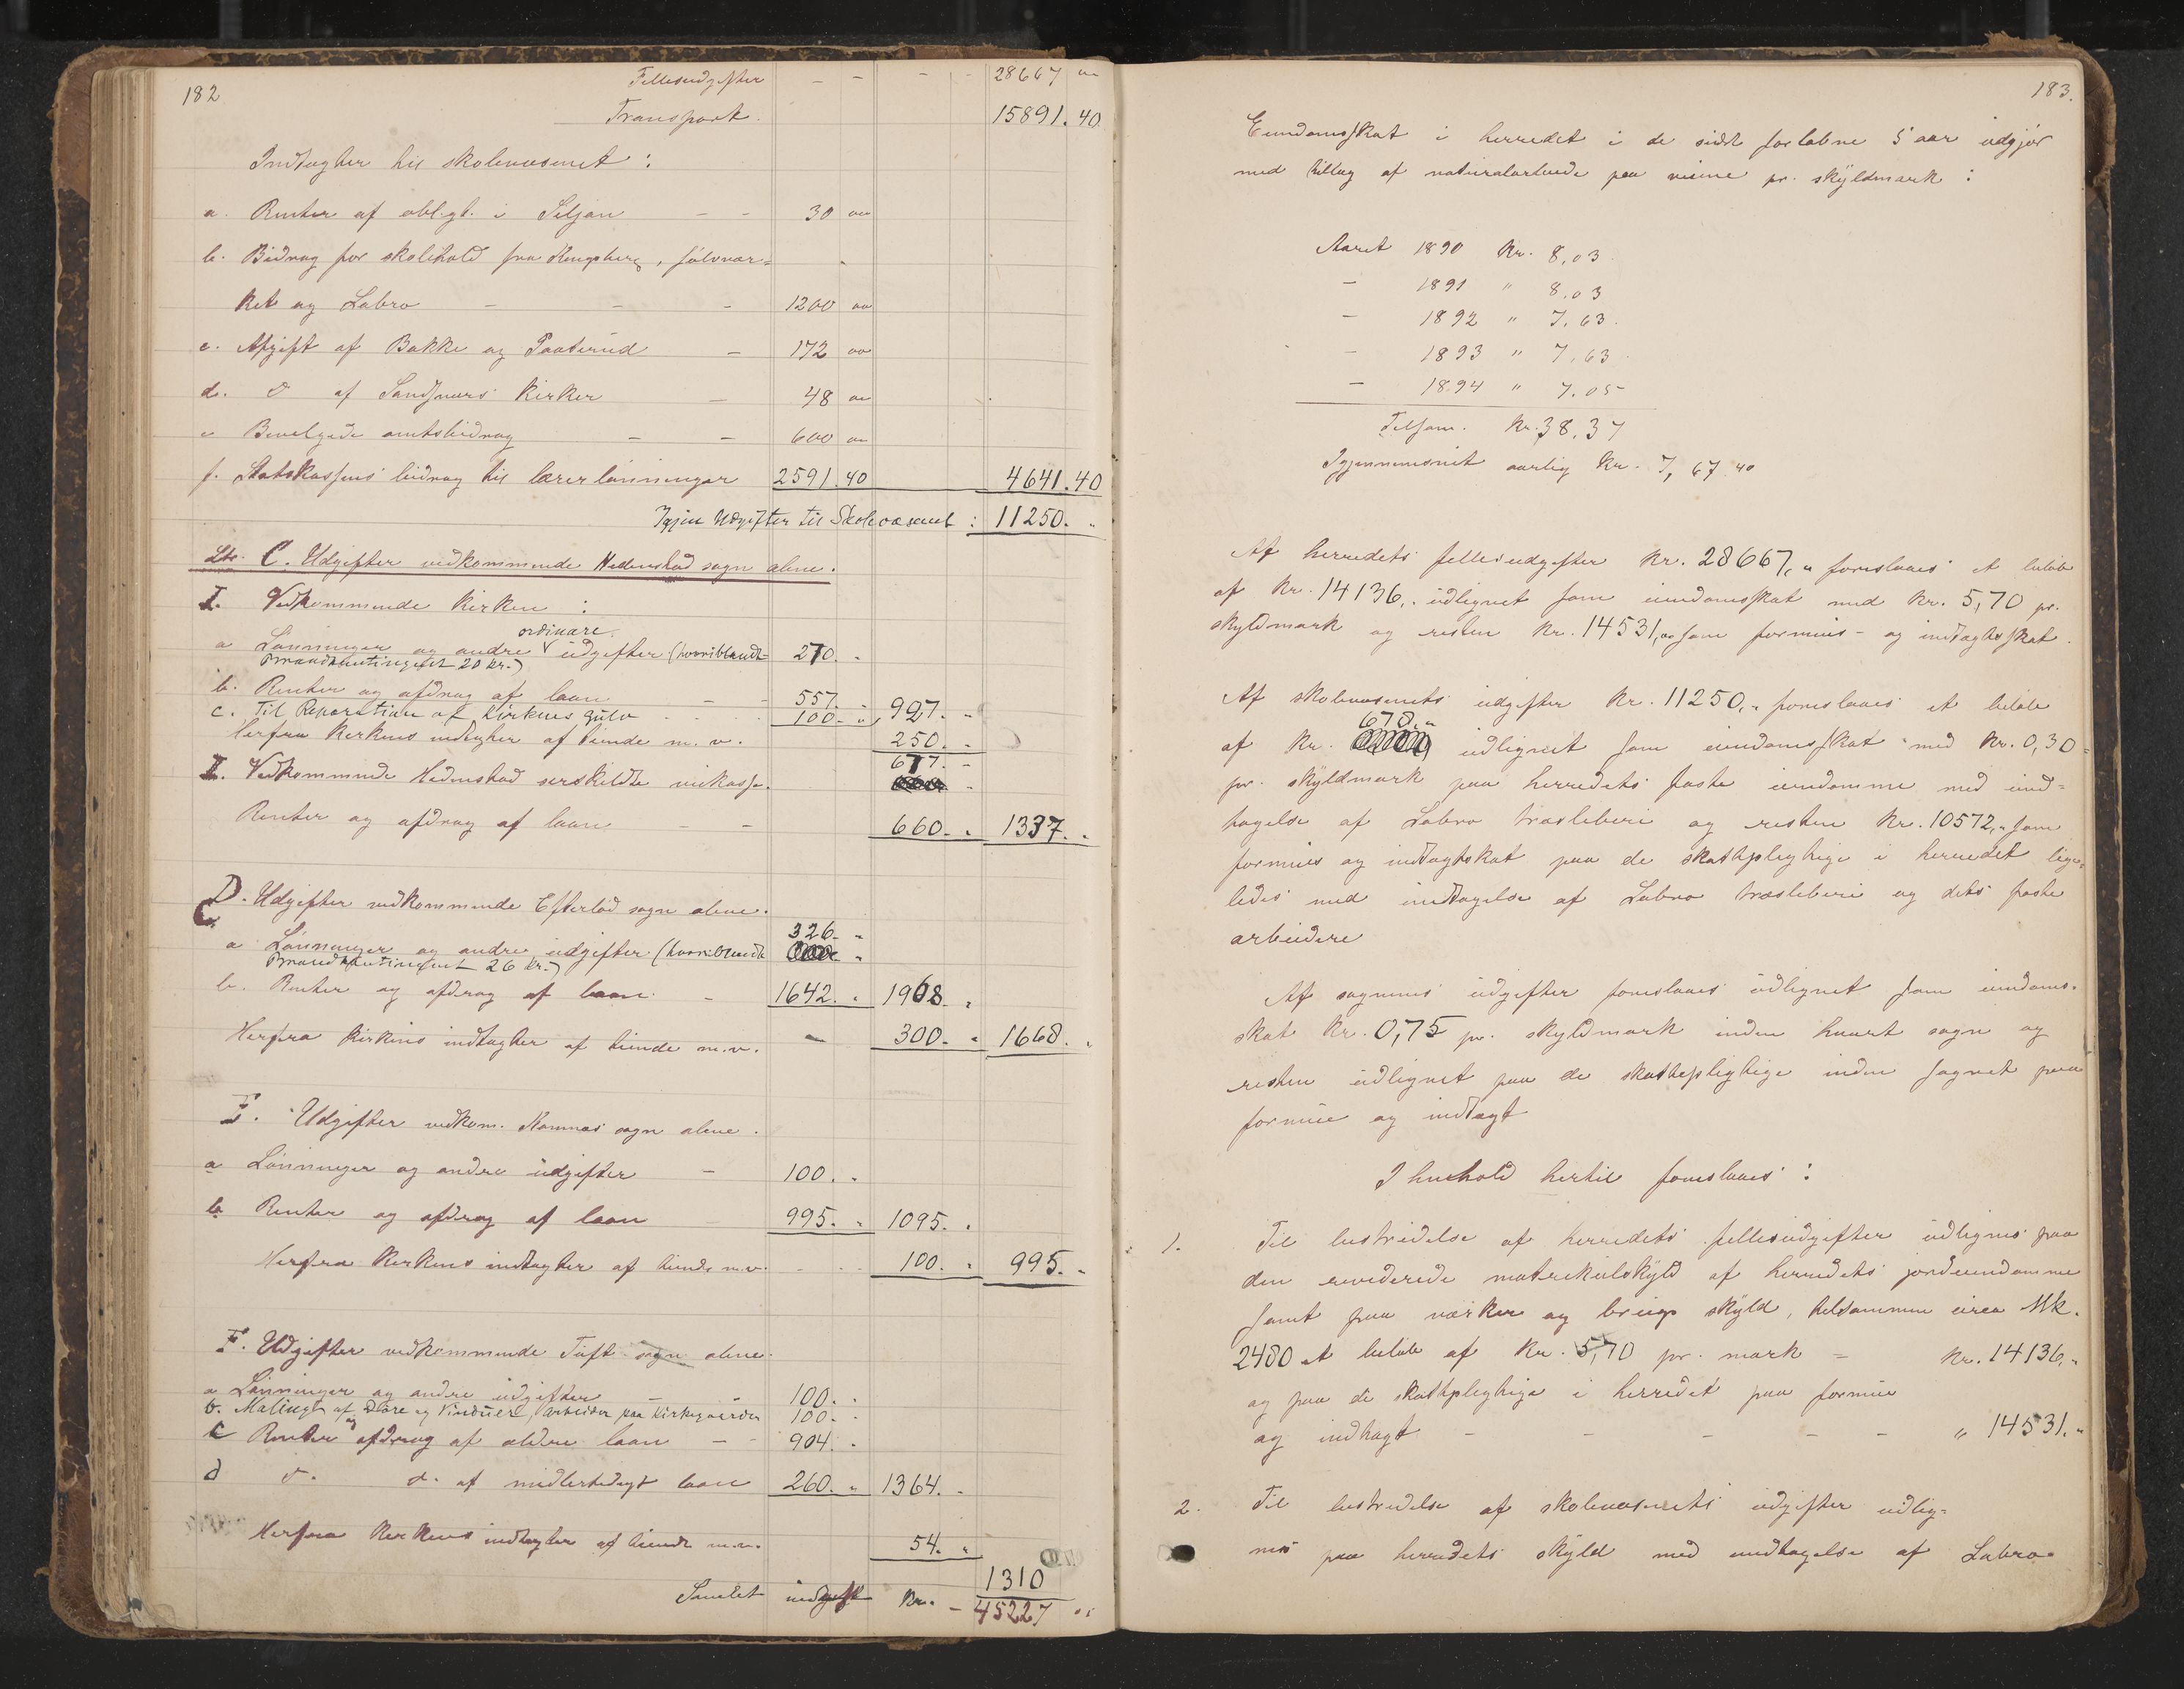 182
Fellesudgifter - - - - 28667 "
Transport. 15891.40
Indtægter til skolevæsenet :
a. Renter af obl.gt. i Siljan - - 30 00
b. Bidrag for skolehold fra Kongsberg, sølvvær=
ket og Labro - - - 1200 00
c. Afgift af Bakke og Paaterud - 172 00
d. do af Sandsværs Kirker - 48 00
e Bevilgede amtsbidrag - - 600 00
f. Statskassens bidrag til lærerlønninger 2591.40 4641.40
Igjen Udgifter til Skolevæsenet : 11250. "
Ltr. C. Udgifter vedkommende Hedenstad sogn alene.
I. Vedkommende Kirken :
ordinære
a Lønninger og andre udgifter (hvoriblandt 270. "
Brandkontingent 20 kr.)
b. Renter og afdrag af laan - - 557. "
c. Til Reparation af Kirkens gulv 100. " 927. "
Herfra Kirkens indtægter af tiende m. v. 250. "
677. "
II. Vedkommende Hedenstad særskildte veikasse.
Renter og afdrag af laan - - 660. " 1337. "
D. Udgifter vedkommende Efteløt sogn alene.
326. "
a Lønninger og andre udgifter (hvoriblandt
Brandkontingent 26 kr.)
b. Renter og afdrag af laan. - 1642. " 1968. "
Herfra Kirkens indtægter af tiende m.v. - 300. " 1668. "
E. Udgifter vedkom. Komnes sogn alene.
a Lønninger og andre udgifter - 100. "
b Renter og afdrag af laan - 995. " 1095. "
Herfra Kirkens indtægter af tiende m.v. 100. " 995. "
F. Udgifter vedkommende Tuft sogn alene.
a Lønninger og andre udgifter - 100. "
b. Maling af Døre og Vinduer, arbeider paa Kirkegaarden 100. "
c Renter og afdrag af ældre laan - - 904. "
d do. do. af midlertidigt laan 260. " 1364. "
Herfra Kirkens indtægter af tiende m.v. 54. "
1310
Samlet udgift Kr. - 45227 "
183.
Eiendomsskat i herredet i de sidst forløbne 5 aar udgjør
med tillæg af naturalarbeide paa veiene pr. skyldmark :
Aaret 1890 Kr. 8,03
- 1891 " 8,03
- 1892 " 7,63
- 1893 " 7,63
- 1894 " 7.05
Tilsam. Kr. 38,37
Igjennemsnit aarlig Kr. 7,67 40
Af herredets fellesudgifter Kr. 28667, " foreslaaes et beløb
af Kr. 14136, " udlignet som eiendomsskat med Kr. 5,70 pr.
skyldmark og resten Kr. 14531,00 som formues- og indtægtsskat.
Af skolevæsenets udgifter Kr. 11250, " foreslaaes et beløb
678. "
af Kr. udlignet som eiendomsskat med Kr. 0,30 =
pr. skyldmark paa herredets faste eiendomme med und=
tagelse af Labro træsliberi og resten Kr. 10572, " som
formues og indtægtskat paa de skattepligtige i herredet lige=
ledes med undtagelse af Labro træsliberi og dets faste
arbeidere
Af sognenes udgifter foreslaaes udlignet som eiendoms=
skat Kr. 0,75 pr. skyldmark inden hvert sogn og
resten udlignet paa de skattepligtige inden sognet paa
formue og indtægt
I henhold hertil foreslaaes :
1. Til bestridelse af herredets fellesudgifter udlignes paa
den reviderede matrikulskyld af herredets jordeiendomme
samt paa værker og brugs skyld, tilsammen circa Mk.
2480 et beløb af Kr. 5,70 pr. mark = Kr. 14136, "
og paa de skattepligtige i herredet paa formue
og indtægt - - - - - " 14531. "
2. Til bestridelse af skolevæsenets udgifter udlig=
nes paa herredets skyld med undtagelse af Labro